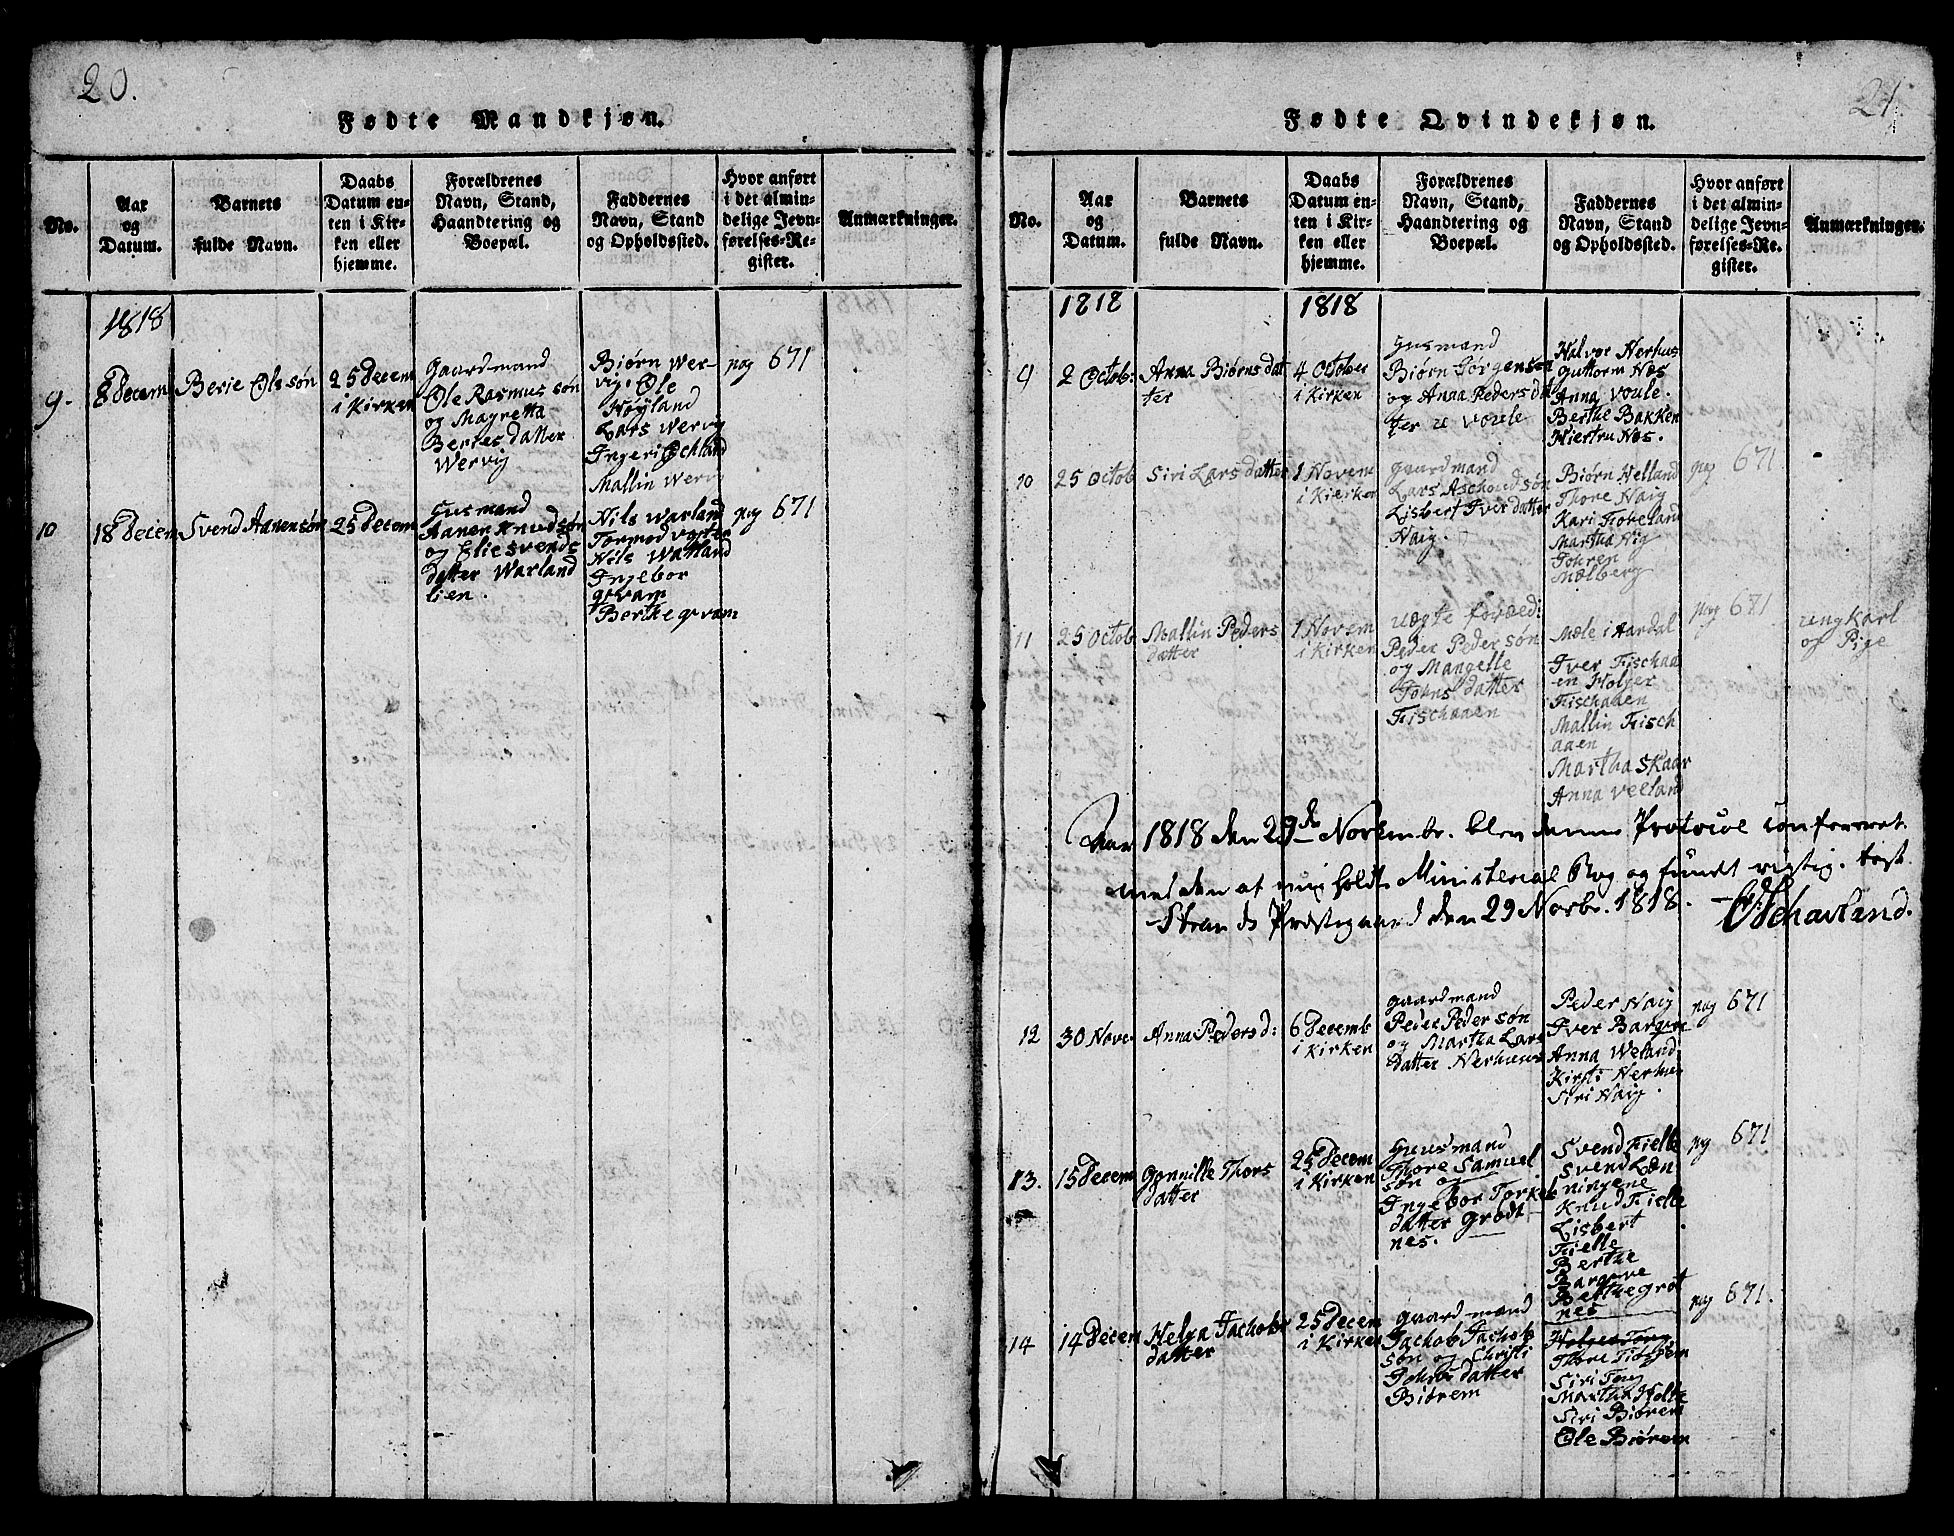 20.
Fødte Mandkjøn.
No.
Aar
og
Datum.
Barnets
fulde Navn.
Daabs
Datum en-
ten i Kir-
ken eller
hjemme.
Forældrenes
Navn, Stand,
Haandtering og
Boepæl.
Faddernes
Navn, Stand
og Opholdssted.
Hvor anført
i det almin-
delige Jevn-
førelses-Re-
gister.
Anmærkninger.
1818
9.
8 Decem
Berie Olssøn
25 Decem
i Kirken
Gaardmand
Ole Rasmussøn
og Magretta
Bertes datter
Wervig
Biørn Wer-
vig. Ole
Høyland
Lars Wervig
Ingeri Ochland
Mallin Wervi
pag 671
10
18 Decem
Svend Aanensøn
25 Decem
Husmand
Aanen Knudsøn
og Elie Svends
datter Warland
lien.
Nils Warland
Tormod
Nils Watland
Ingebor
qvam
Berthe qvam
pag 671
21.
Fødte Qvindekjøn.
No.
Aar
og
Datum.
Barnets
fulde Navn.
Daabs
Datum en-
ten i Kir-
ken eller
hjemme.
Forældrenes
Navn, Stand,
Haandtering og
Boepæl.
Faddernes
Navn, Stand
og Opholdssted.
Hvor anført
i det almin-
delige Jevn-
førelses-Re-
gister.
Anmærkninger.
1818
1818
9
2 Octob:
Anna Biørnsdat
ter
4 October
i Kirken
Husmand
Biørn Jørgensen
og Anna Pedersdat
ter Voule
Halvor Nerhus
Guttorm Nes
Anna Voule.
Berthe Bakken
Hiertru Nes.
10
25 Octob
Siri Larsdatter
1 Novem
i Kierken
gaardmand
Lars Aschoudsøn
Lisbert Iverdatter
Haig.
Biørn Helland
Thore Haig
Kari Tioteland
Martha Hig
Johren
Mælberg
pag 671
11
25 Octob
Mallin Peders
datter
1 Novem
i Kirken
uegte foræld:
Peder Pedersøn
og Mangelle
Johnsdatter
Fischaaen
Mæle i Aardal
Iver Fischaa
en Holger
Fischaaen
Mallin Fisch
aaen
Martha Skaar
Anna Velland
pag 671
ungkarl
og Pige
Aar 1818 den 29de Novembr. blev denne Protocol confereret
med den af mig holdte Ministerial Bog og fundet rigtig. test.
Strands Præstegaard den 29 Novbr. 1818. Schavland.
12
30 Nove
Anna Pedersd:
6 Decemb
i Kirken
gaardmand
Peder Pedersøn
og Martha Lars
datter Nerhuus
Peder Haig
Iver Barqve
Anna Weland
Kirsti Nerhu
Siri Haig.
pag 671
13.
15 Decem
Gonnille Thors
datter
25 Decem
i Kirken
Huusmand
Thore Samuel
søn og
Ingebor Torkels
datter Grødt
nes.
Svend Fielle
Svend Læn
ningene
Knud Fielle
Lisbert
Fielle
Berthe
Barqve
Berthe grøt
nes
pag 671
14
14 Decem
Helga Jachobs
datter
25 Decem
i Kirken
gaardmand
Jachob Jachob
søn og Christi
Johnsdatter
Biørem
Siri Tong
Martha Holte
Siri Biørem
Ole Biørem
pag 671.